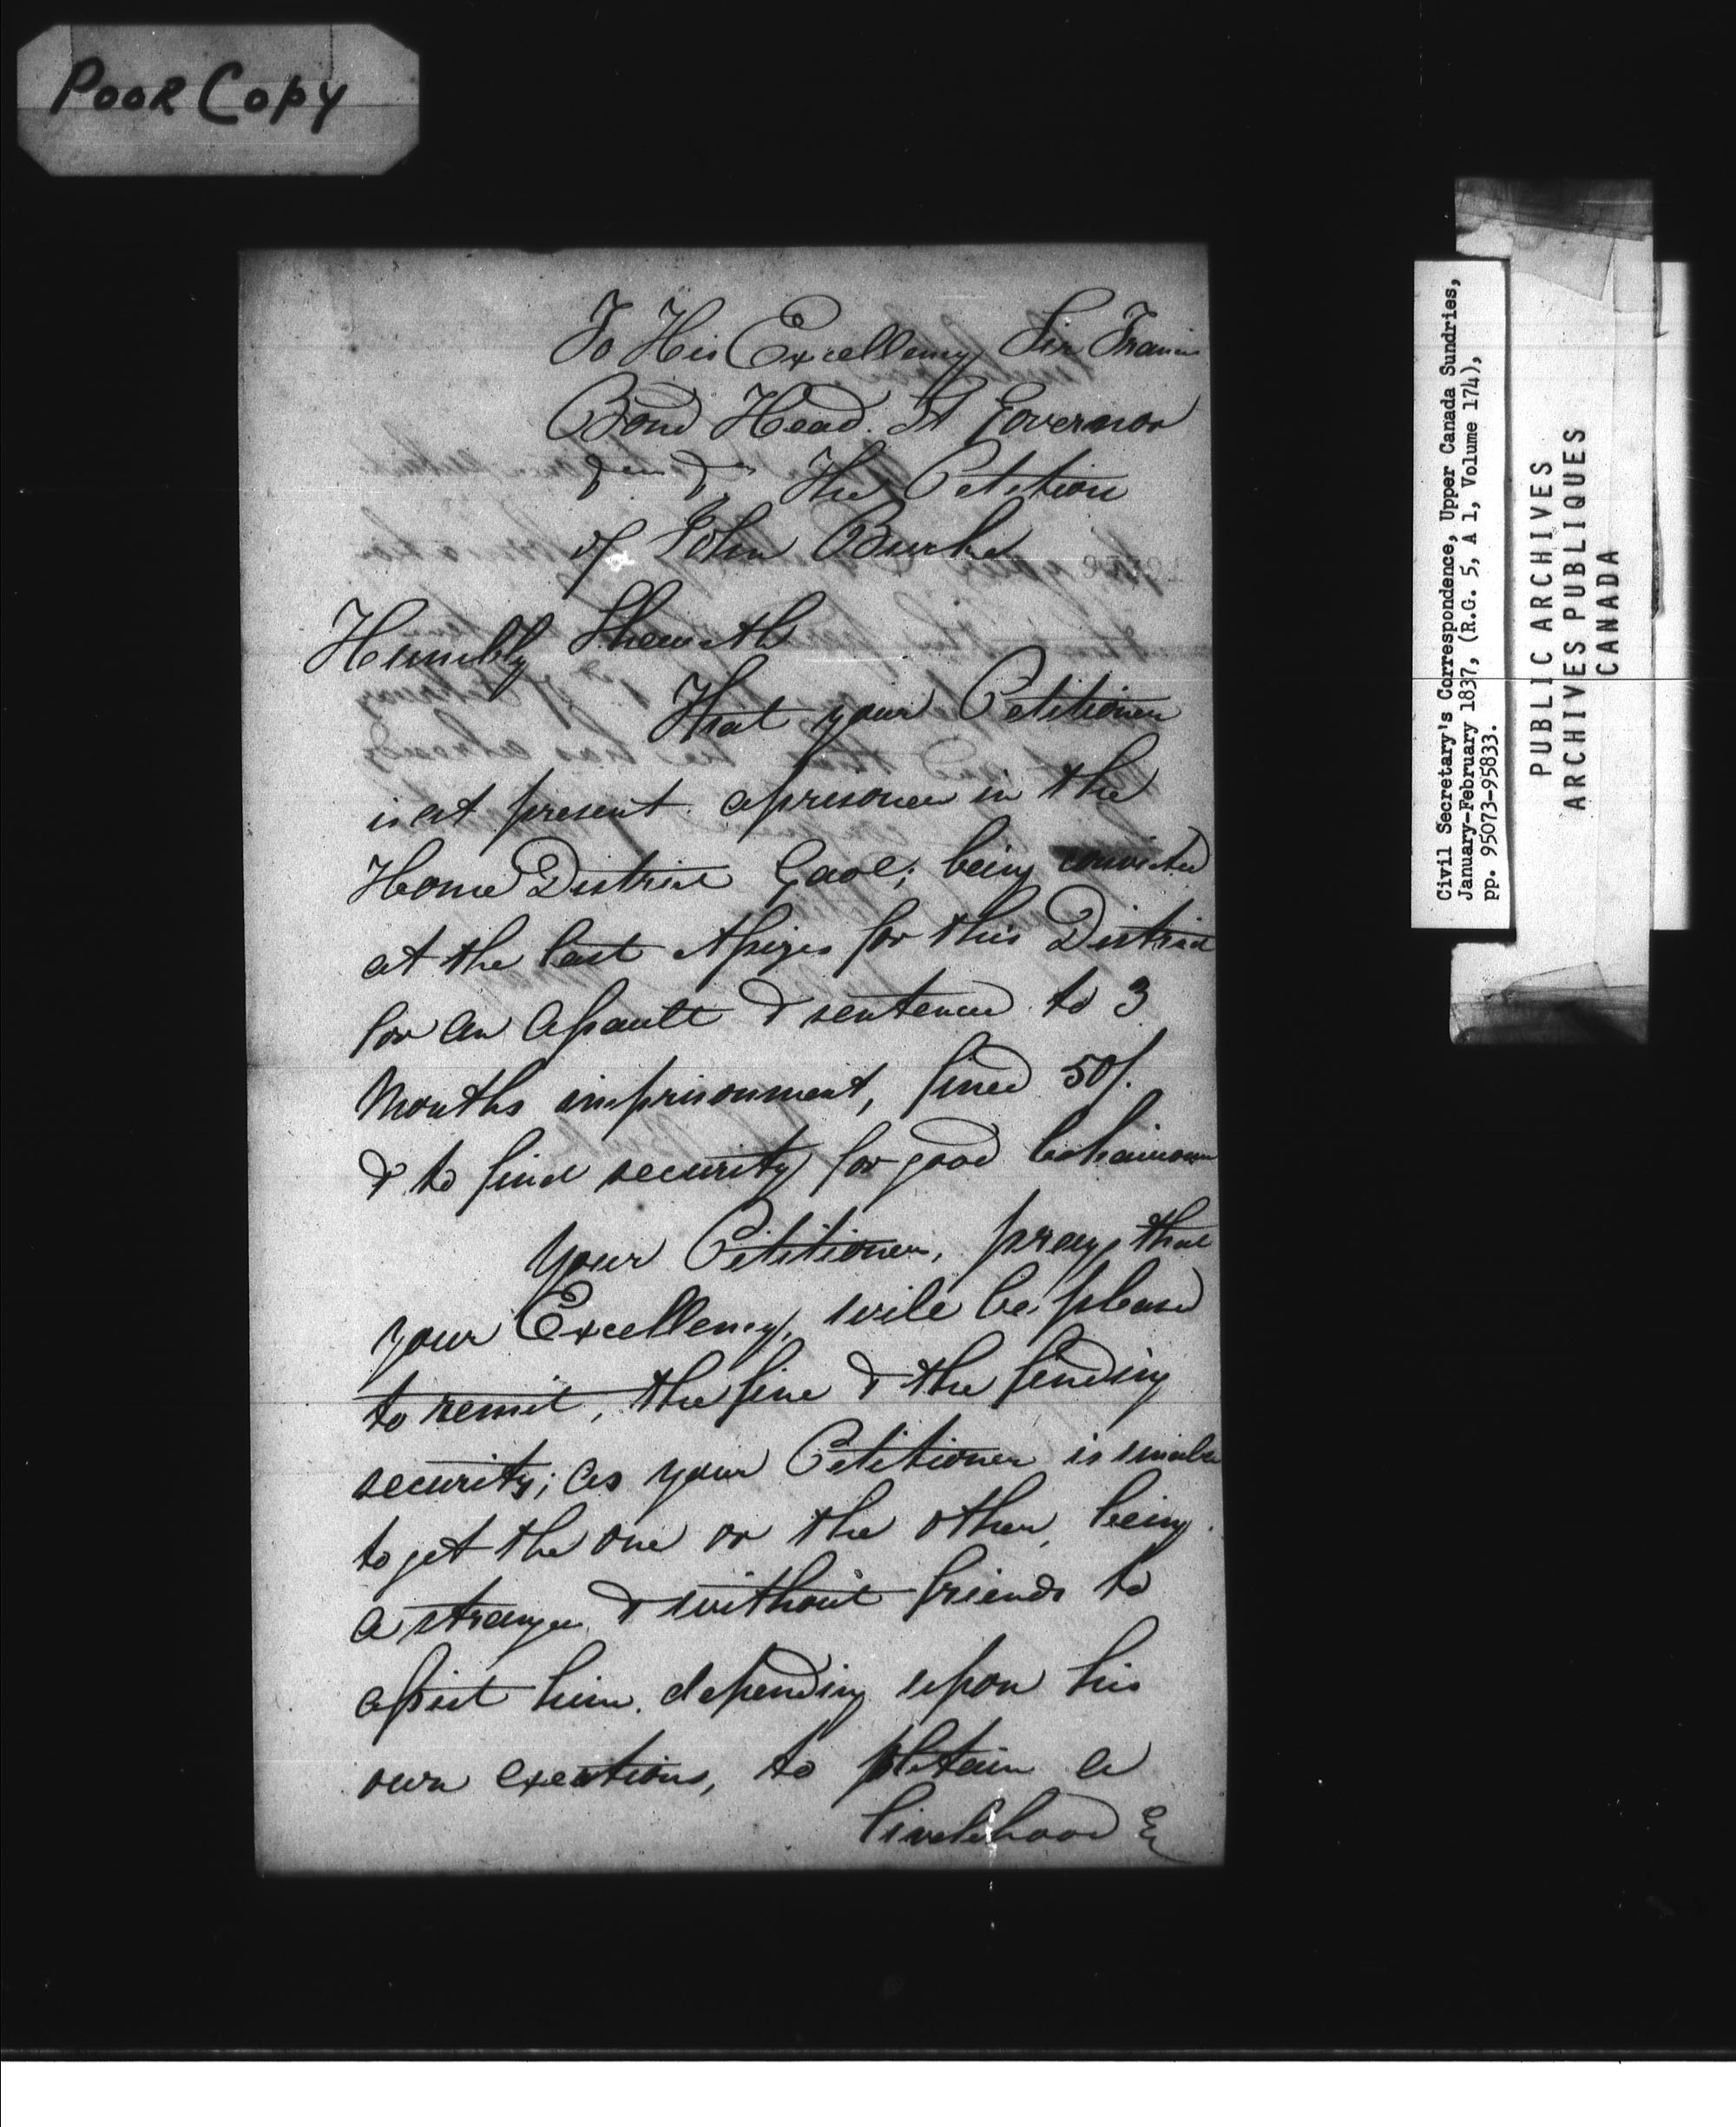 Poor Copy
To His Excellency Sir Francis
Bond Head. Lt Governor
& & The Petition
of John Burke
Humbly Sheweth
That your Petitioner
is at present a prisoner in the
Home District Gaol; being convicted
at the last Assizes for this District
for an assault & sentenced to 3
Months imprisonment, fined 50/.
& to find security for good behaviour
Your Petitioner, prays that
your Excellency, will be pleased
to remit, the fine & the finding
security; as your Petitioner is unable
to get the one or the other, being
a stranger & without friends to
assist him. depending upon his
own exertions, to obtain a
livelihood
Civil Secretary's Correspondence, Upper Canada Sundries,
January-February 1837, (R.G. 5, A 1, Volume 174),
pp. 95073-95833.
PUBLIC ARCHIVES
ARCHIVES PUBLIQUES
CANADA